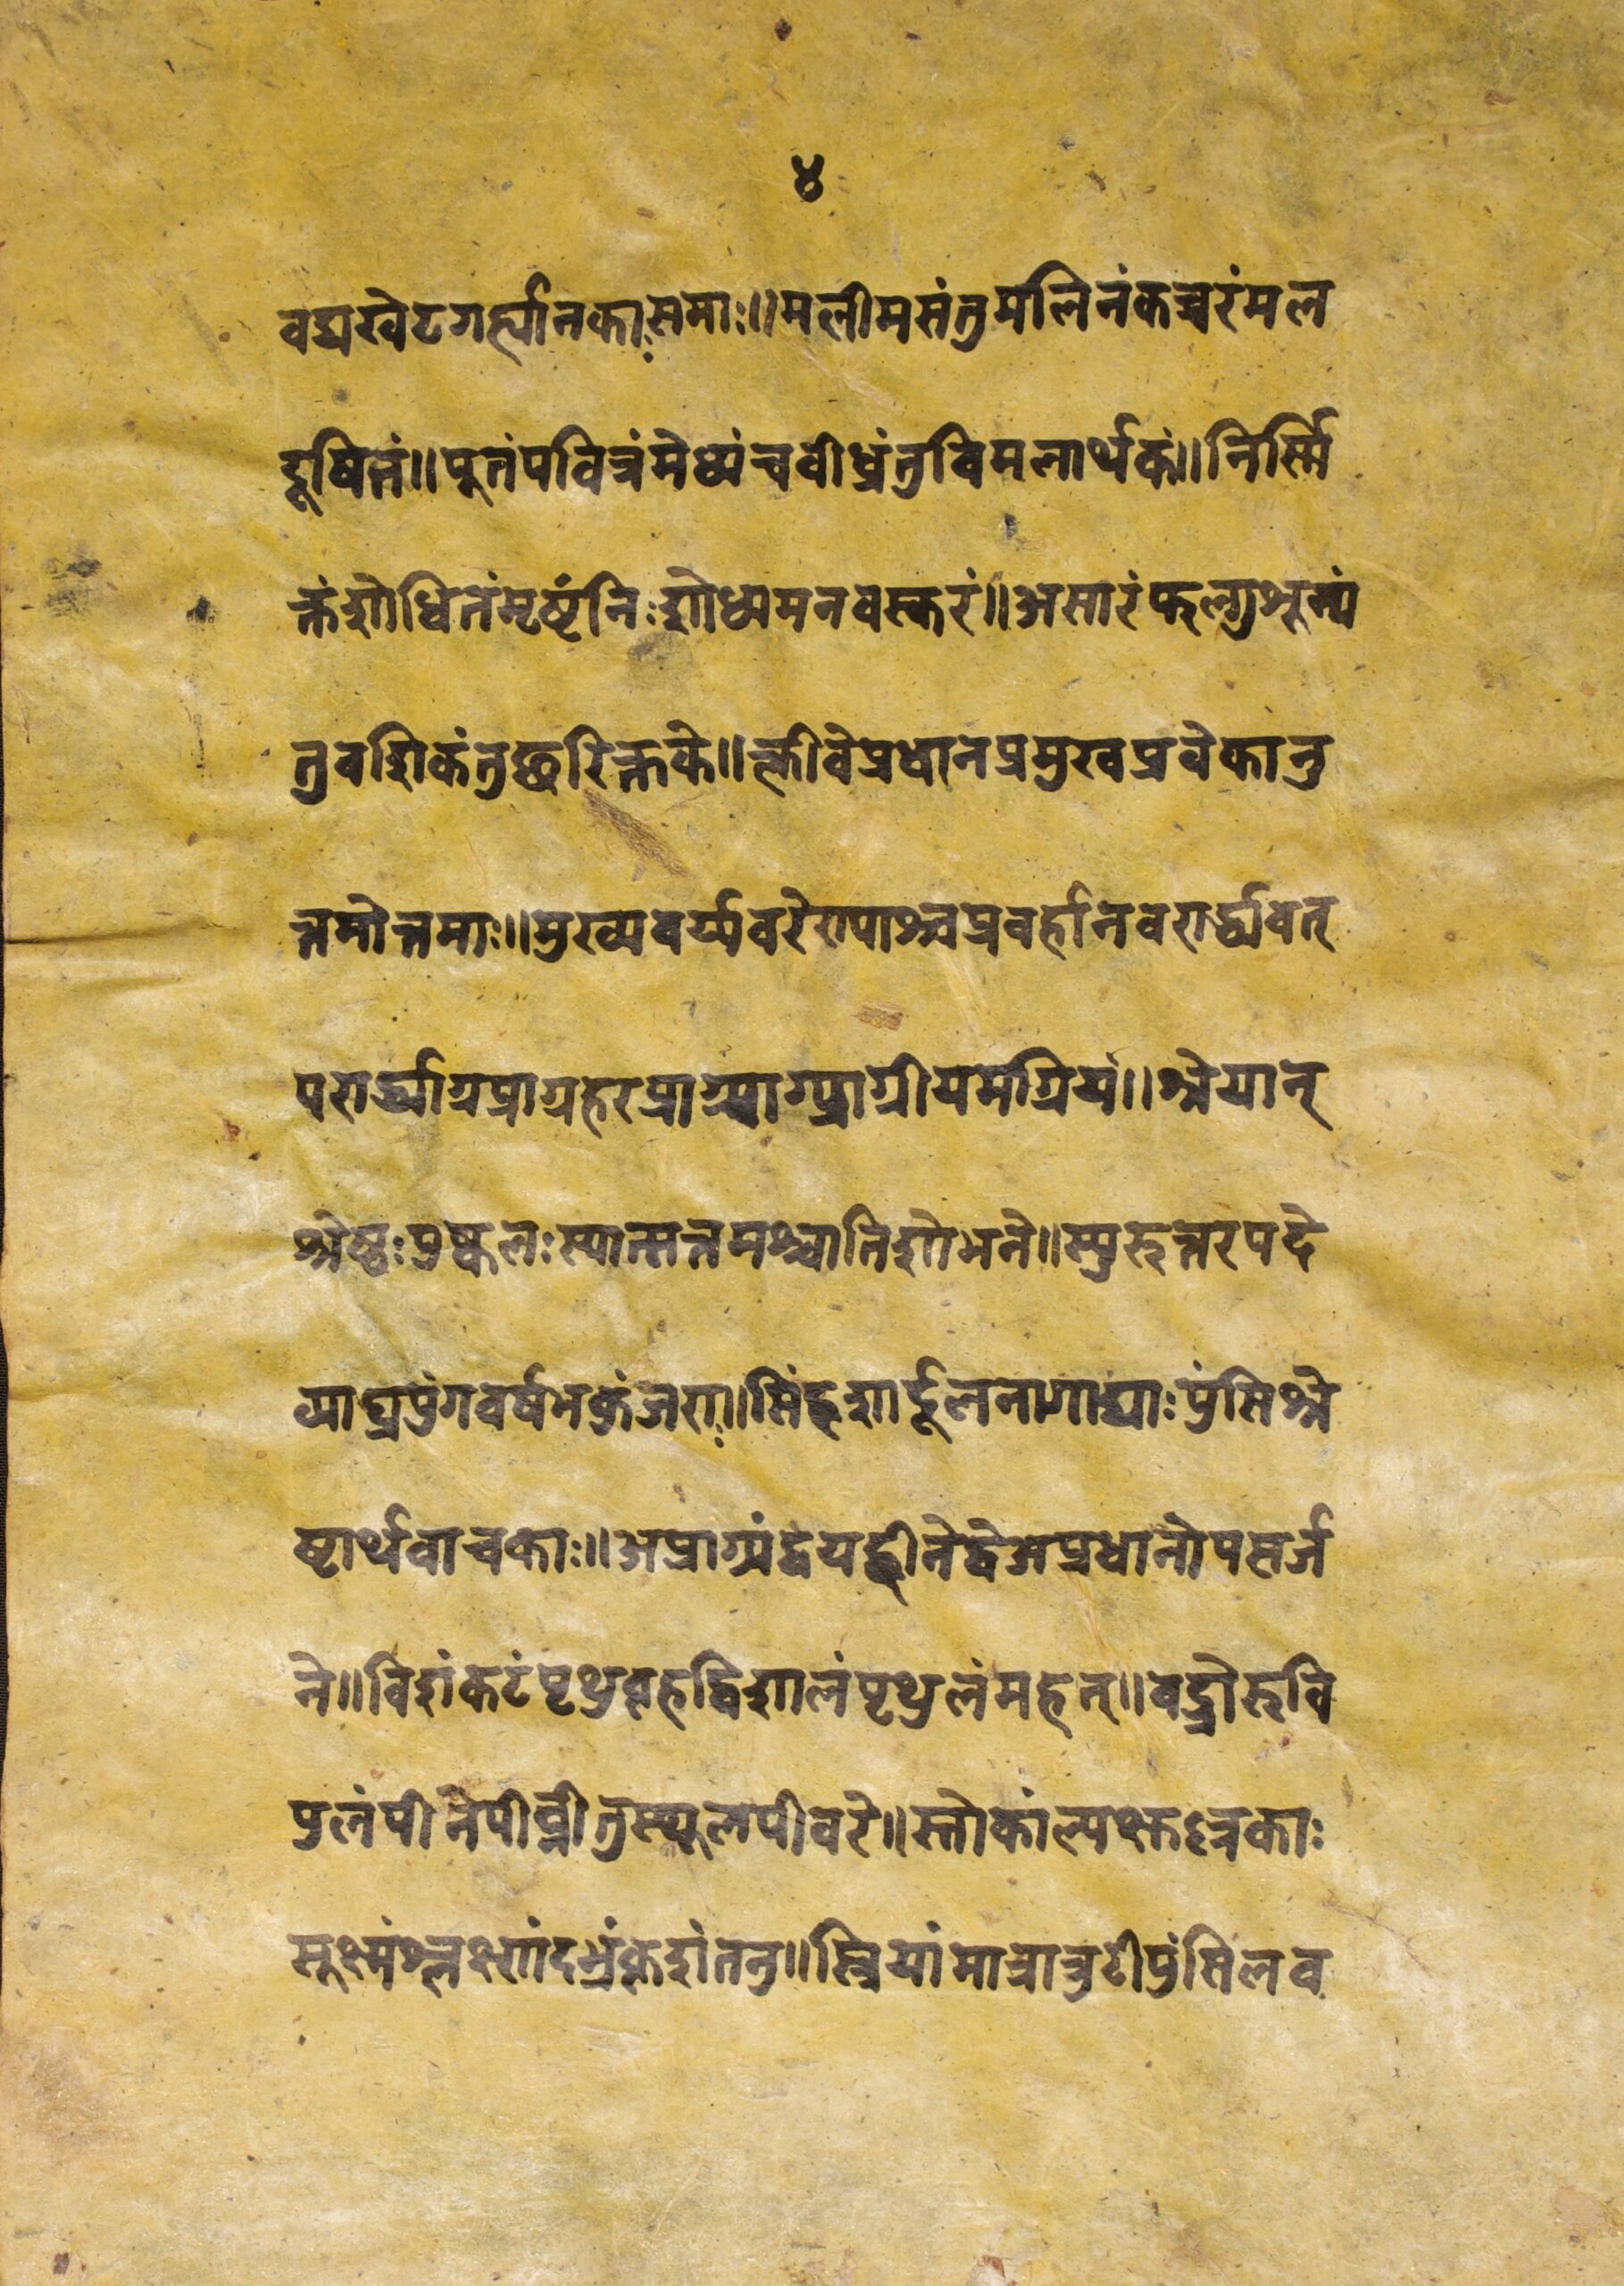 ४
वद्यखेटगर्ह्यानकाःसमाः॥मलीमसंतुमलिनंकच्चरंमल
दूषितं॥पूतंपवित्रंमेध्यंचवीध्रंतुविमलार्थकं॥निर्ल्सि
क्तंशोधितंमृष्टंनिःशोध्यमनवस्करं॥असारंफल्गुशून्यं
तुवशिकंतुछरिक्तके॥क्लीवेप्रधानप्रमुखप्रवेकानु
त्तमोत्तमाः॥मुख्यवर्य्यवरेण्याश्चप्रवर्हानवरार्द्ध्यवत्
परार्द्ध्याग्रप्राग्रहरप्राग्र्याग्र्याग्रीयमग्रियं॥श्रेयान्
श्रेष्ठःपुष्कलःस्यात्सत्तमश्चातिशोभने॥स्युरुत्तरपदे
व्याघ्रपुंगवर्षभकुंजराः॥सिंहशार्दूलनागाद्याःपुंसिश्रे
ष्टार्थवाचकाः॥अप्राग्र्यंद्वयहीनेद्वेअप्रधानोपसर्ज
ने॥विशंकटंपृथुबृहद्विशालंपृथुलंमहत्॥वड्रोरुवि
पुलंपीनपीव्नीतुस्थूलपीवरे॥स्तोकांल्पक्षुल्लकाः
सूक्ष्मंश्लक्ष्णंदभ्रंकृशंतनु॥स्त्रियांमात्रात्रुटीपुंसिलव